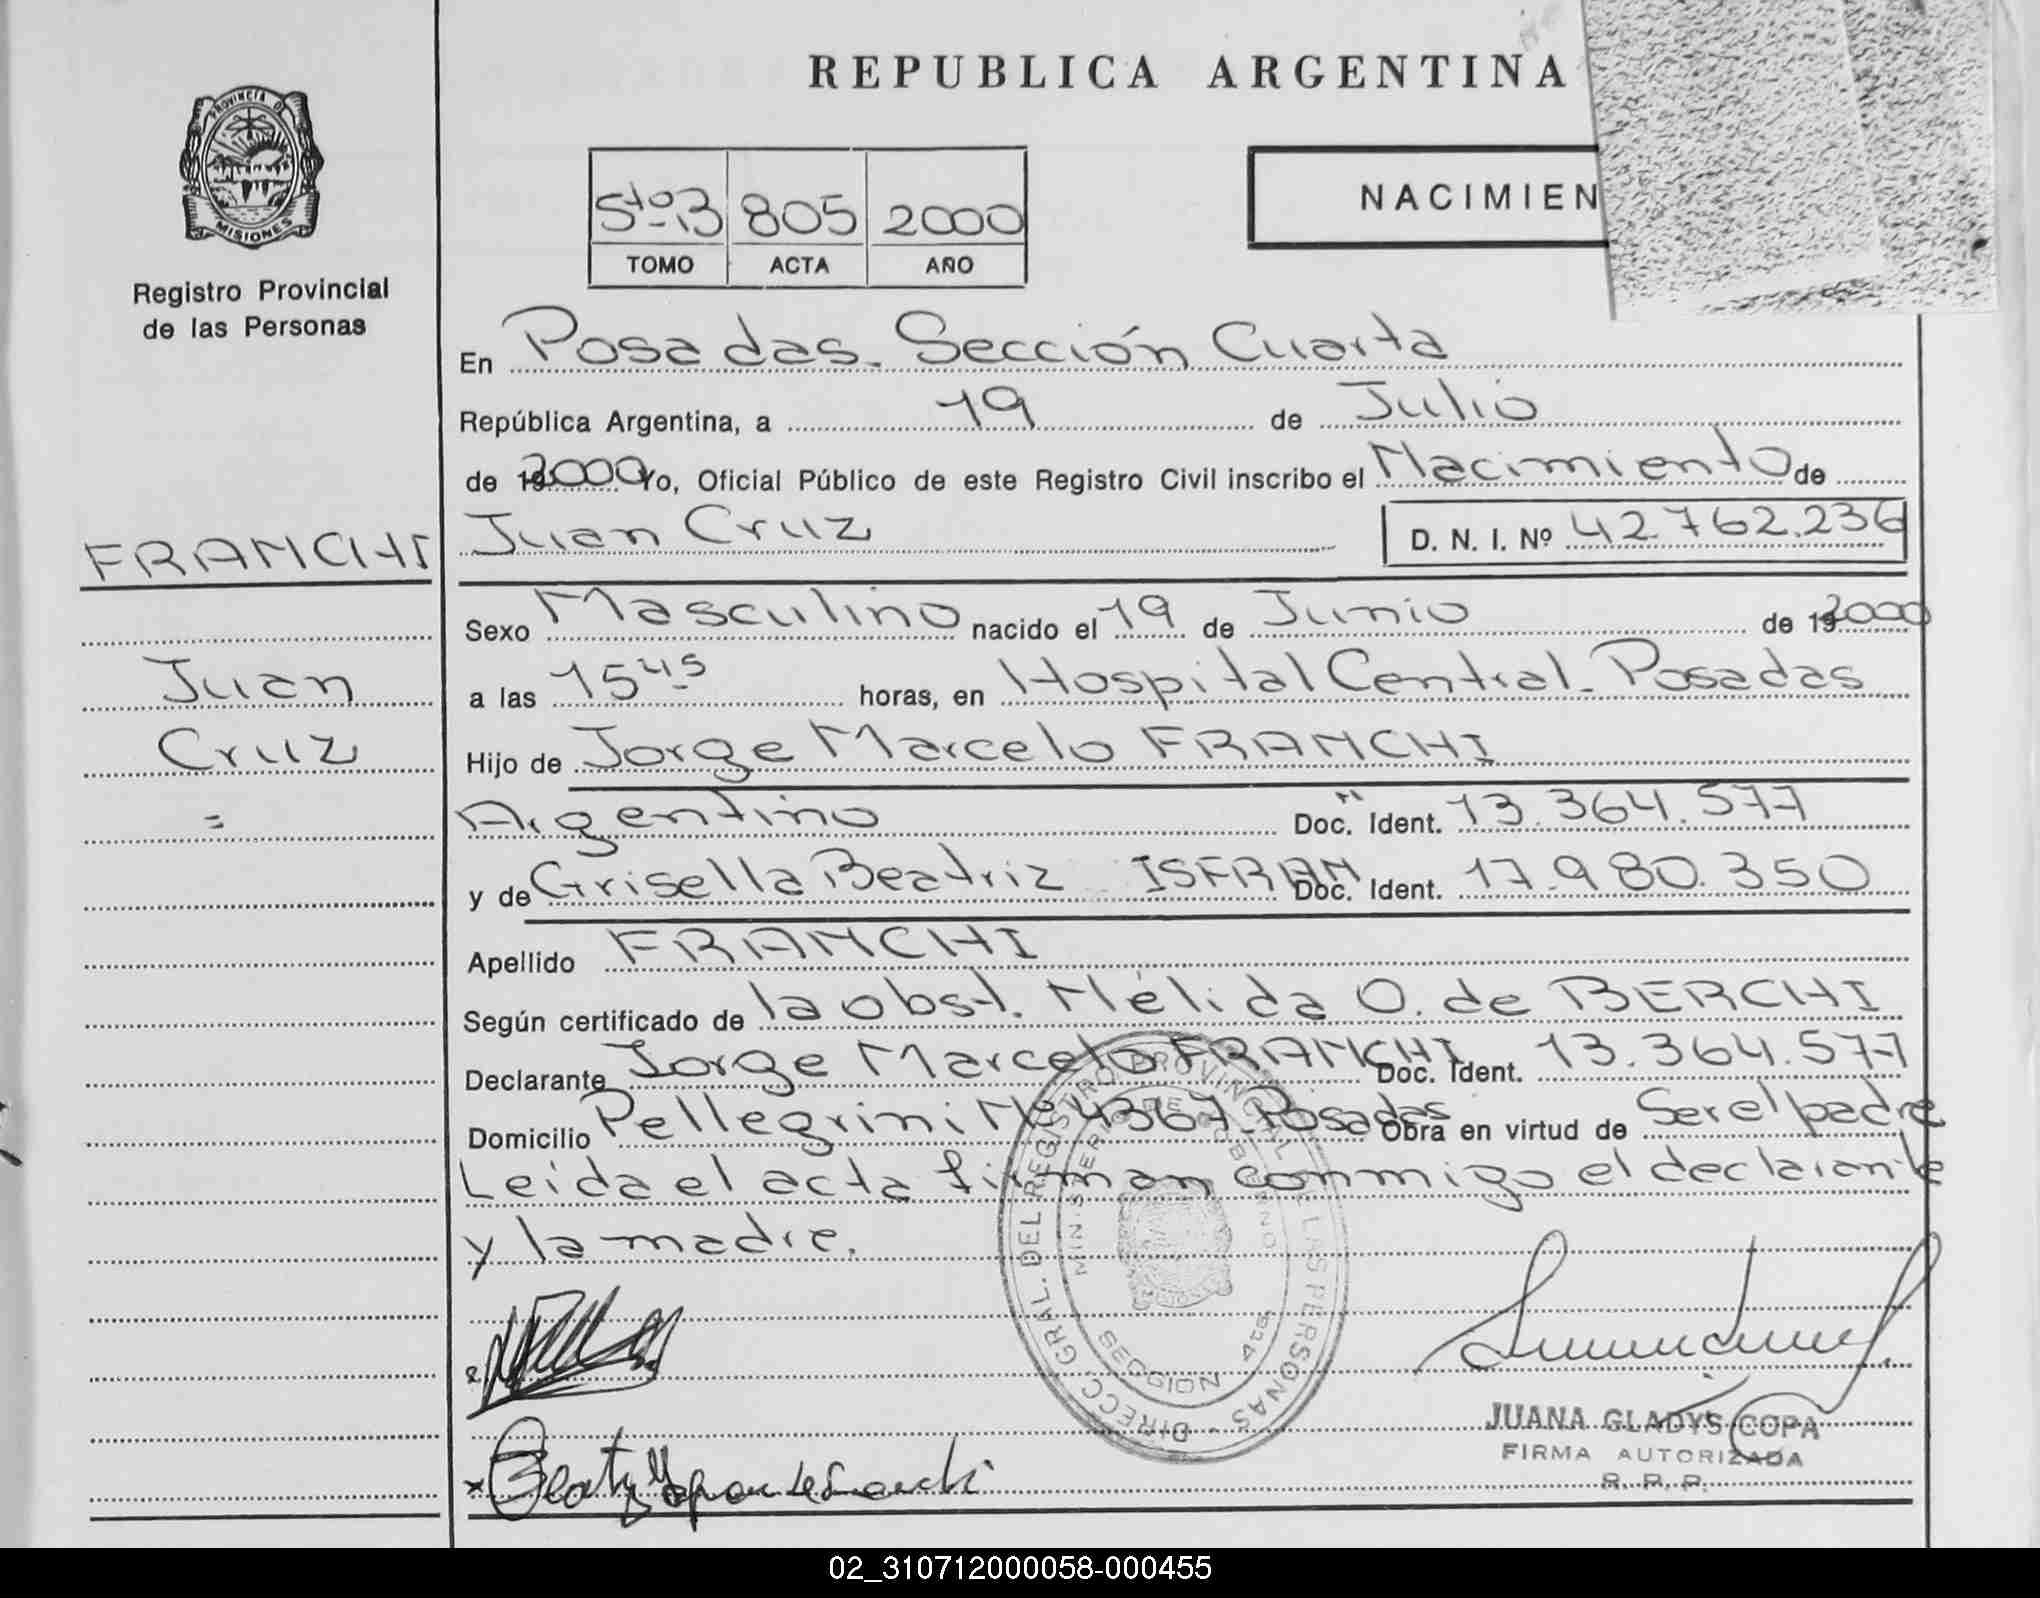 REPUBLICA ARGENTINA
PROVINCIA DE
MISIONES
Registro Provincial
de las Personas
5to 13 805 2000
TOMO ACTA AÑO
NACIMIEN
En Posadas. Sección Cuarta
República Argentina, a 19 de Julio
de 192000 Yo, Oficial Público de este Registro Civil inscribo el Nacimiento de
FRANCHI
Juan Cruz D. N. I. Nº 42.762.236
Sexo Masculino nacido el 19 de Junio de 192000
Juan
a las 15 45 horas, en Hospital Central. Posadas
Cruz
Hijo de Jorge Marcelo FRANCHI
=
Argentino Doc. Ident. 13.364.577
y de Grisella Beatriz ISFRAN Doc. Ident. 17.980.350
Apellido FRANCHI
Según certificado de la obst. Nélida O. de BERCHI
Declarante Jorge Marcelo FRANCHI Doc. Ident. 13.364.577
Domicilio Pellegrini Nº 4367. Posadas Obra en virtud de Ser el padre
Leída el acta firman conmigo el declarante
y la madre.
DIRECC. GRAL. DEL REGISTRO PROVINCIAL DE LAS PERSONAS
MINISTERIO DE GOBIERNO
SECCION 4ta
JUANA GLADYS COPA
FIRMA AUTORIZADA
R. P. P.
02_310712000058-000455